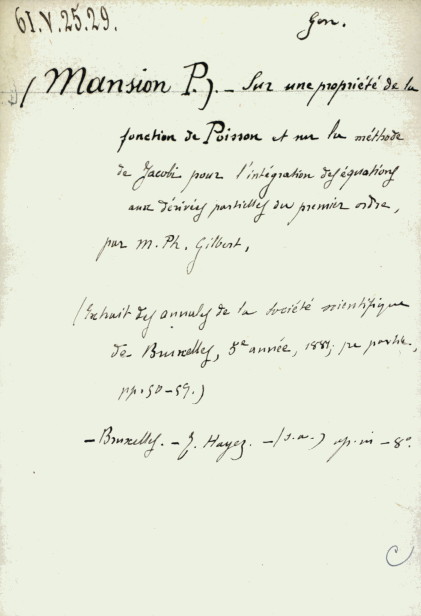 61.V.25.29.
Gen.
(Mansion P.). — Sur une propriété de la
fonction de Poisson et sur la méthode
de Jacobi pour l'intégration des équations
aux dérivées partielles du premier ordre,
par M. Ph. Gilbert,
(Extrait des annales de la Société scientifique
de Bruxelles, 5e année, 1881; 1re partie,
pp. 50-59.)
— Bruxelles. — Hayez. — (s.a.) in-8°.